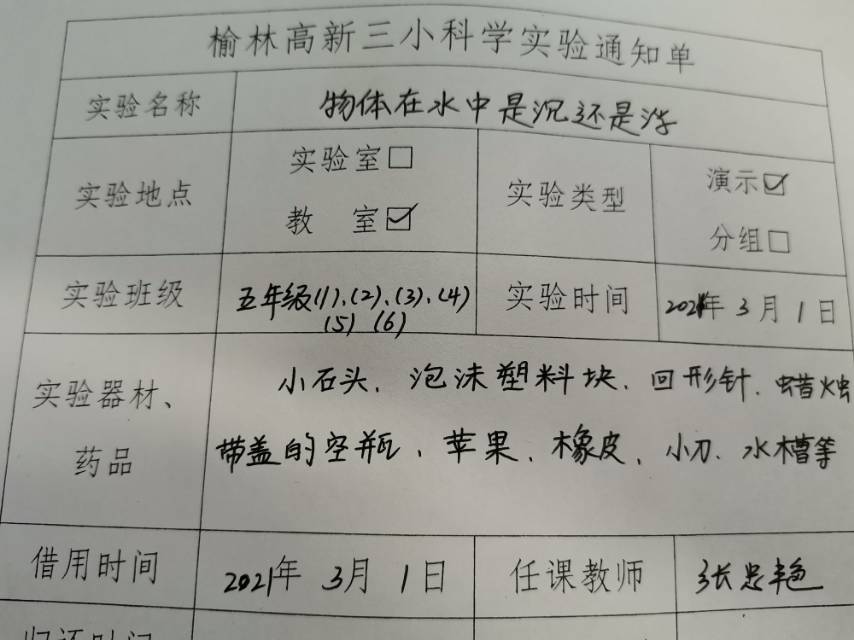 榆林高新三小科学实验通知单
实验名称 物体在水中是沉还是浮
实验地点 实验室□ 教 室☑ 实验类型 演示☑ 分组□
实验班级 五年级(1)、(2)、(3)、(4) (5) (6) 实验时间 2021年 3月 1日
实验器材、药品 小石头、泡沫塑料块、回形针、蜡烛
带盖的空瓶、苹果、橡皮、小刀、水槽等
借用时间 2021年 3月 1日 任课教师 张忠艳
归还时间